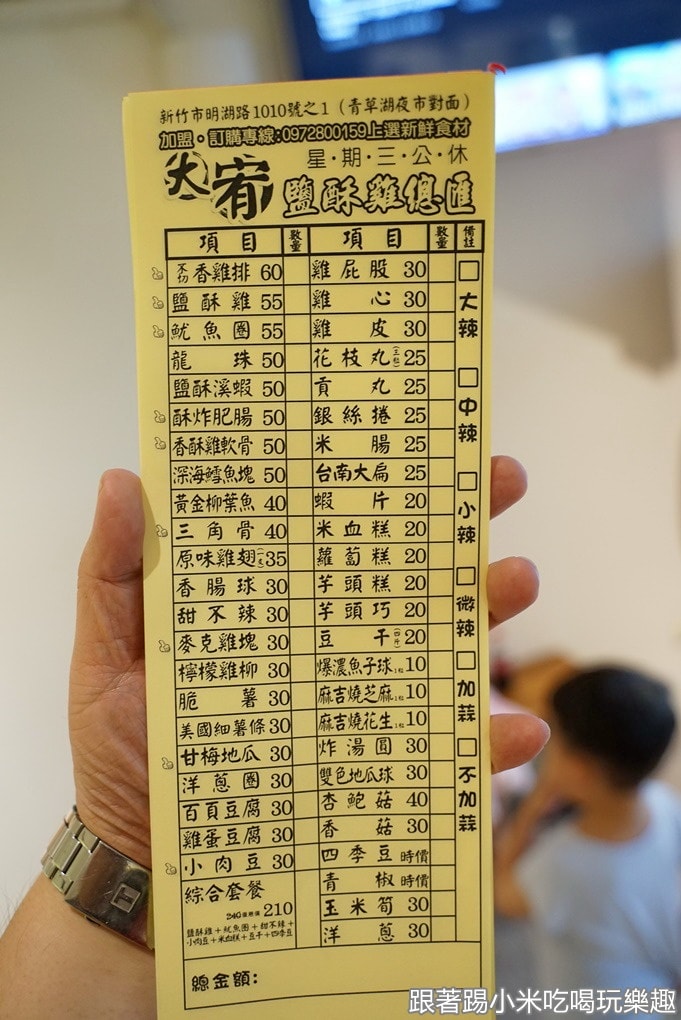 新竹市明湖路1010號之1（青草湖夜市對面）
加盟・訂購專線:0972800159上選新鮮食材
星・期・三・公・休
大宥 鹽酥雞總匯
項目 數量 項目 數量 備註
不切 香雞排 60 雞屁股 30
鹽酥雞 55 雞心 30
魷魚圈 55 雞皮 30
龍珠 50 花枝丸(三粒) 25
鹽酥溪蝦 50 貢丸 25
酥炸肥腸 50 銀絲捲 25
香酥雞軟骨 50 米腸 25
深海鱈魚塊 50 台南大扁 25
黃金柳葉魚 40 蝦片 20
三角骨 40 米血糕 20
原味雞翅(一支) 35 蘿蔔糕 20
香腸球 30 芋頭糕 20
甜不辣 30 芋頭巧 20
麥克雞塊 30 豆干(四片) 20
檸檬雞柳 30 爆濃魚子球1粒 10
脆薯 30 麻吉燒芝麻1粒 10
美國細薯條 30 麻吉燒花生1粒 10
甘梅地瓜 30 炸湯圓 30
洋蔥圈 30 雙色地瓜球 30
百頁豆腐 30 杏鮑菇 40
雞蛋豆腐 30 香菇 30
小肉豆 30 四季豆 時價
綜合套餐 青椒 時價
240優惠價 210 玉米筍 30
鹽酥雞＋魷魚圈＋甜不辣＋ 洋蔥 30
小肉豆＋米血糕＋豆干＋四季豆
□大辣
□中辣
□小辣
□微辣
□加蒜
□不加蒜
總金額：
跟著踢小米吃喝玩樂趣